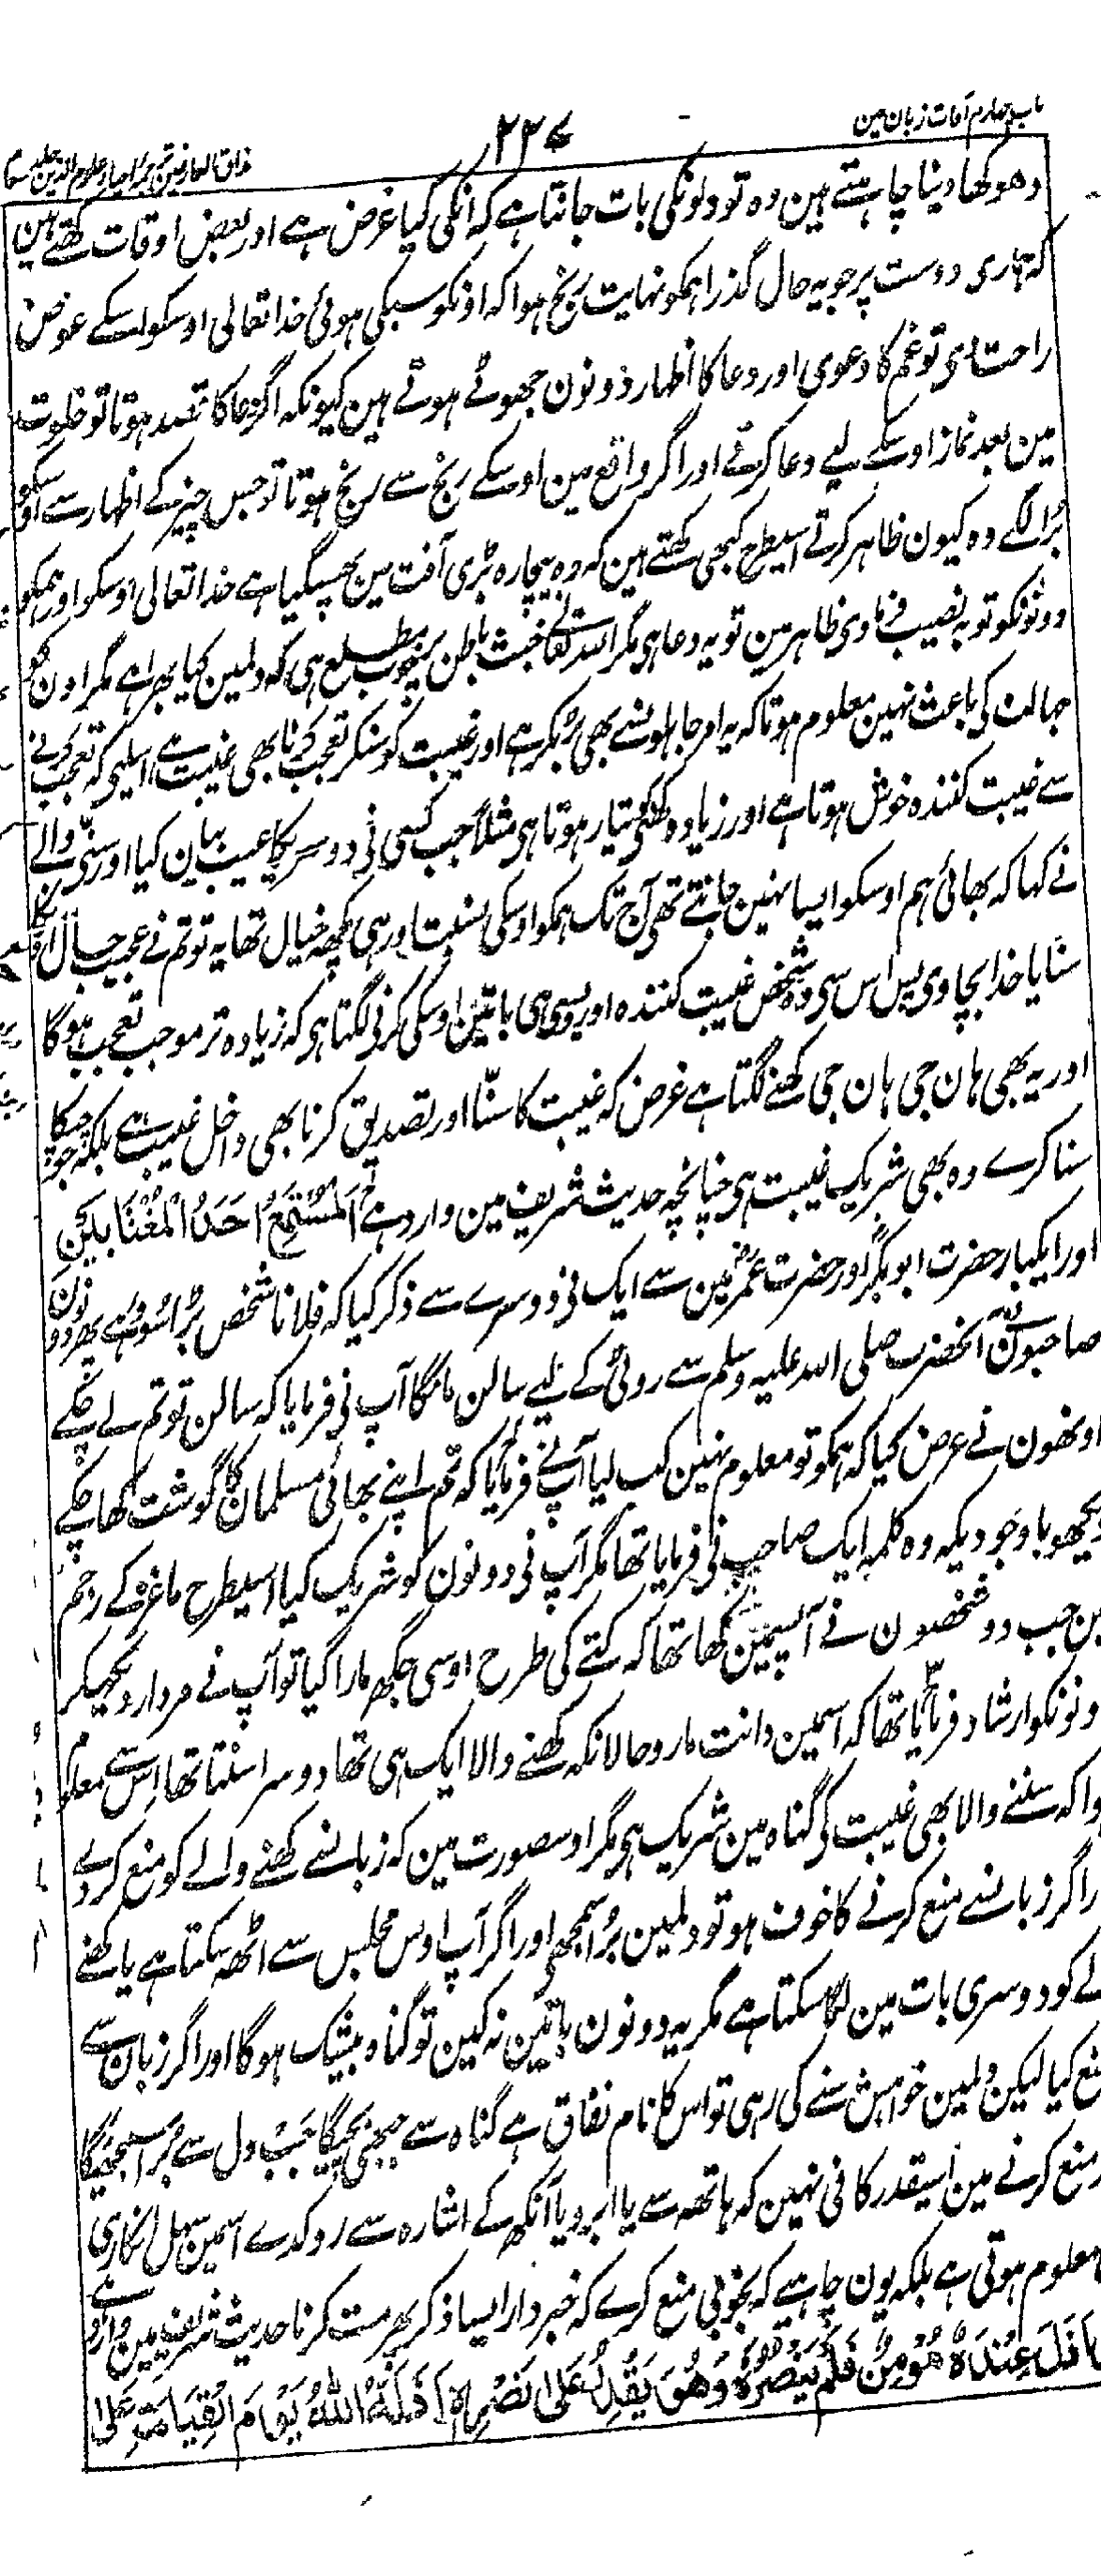 باب چہارم آفات زبان مین
۲۳۷
مذاق العارفین ترجمہ احیاء علوم الدین جلد سوم
دھوکھا دینا چاہتے ہین وہ تو دلونکی بات جانتا ہے کہ انکی کیا غرض ہے اور بعض اوقات کہتے ہین
کہ ہماری دوست پر جو یہ حال گذرا ہمکو نہایت رنج ہوا کہ اونکو سبکی ہوئی خدا تعالی اوسکو اسکے عوض
راحت دی تو غم کا دعوی اور دعا کا اظہار دونون جھوٹے ہوتے ہین کیونکہ اگر دعا کا قصد ہوتا تو خلوت
مین بعد نماز اوسکے لیے دعا کرتے اور اگر واقع مین اوسکے رنج سے رنج ہوتا تو جس چیز کے اظہار سے اوسکو
برا لگے وہ کیون ظاہر کرتے اسیطرح کبھی کہتے ہین کہ وہ بیچارہ بڑی آفت مین پھسگیا ہے خدا تعالی اوسکو اور ہمکو
دونونکو توبہ نصیب فرماوی ظاہر مین تو یہ دعا ہی مگر اللہ تعالے خبث باطن پر خوب مطلع ہی کہ دلمین کیا بھرا ہے مگر اونکو
جہالت کی باعث نہین معلوم ہوتا کہ یہ امر جاہلونسے بھی بڑہکر ہے اور غیبت کو سنکر تعجب کرنا بھی غیبت ہے اسلیے کہ تعجب کرنے
سے غیبت کنندہ خوش ہوتا ہے اور زیادہ کہنیکو تیار ہوتا ہی مثلاً جب کسی نی دوسریکا عیب بیان کیا اور سننی والے
نے کہا کہ بھائی ہم اوسکو ایسا نہین جانتے تھی آج تک ہمکو اوسکی نسبت اور ہی کچھ خیال تھا یہ تو تم نے عجیب حال اوسکا
سنایا خدا بچاوی پس اس سی وہ شخص غیبت کنندہ اور ویسی ہی باتین اوسکی کرنی لگتا ہی کہ زیادہ تر موجب تعجب ہوگا
اور یہ بھی ہان جی ہان جی کہنے لگتا ہے غرض کہ غیبت کا سننا اور تصدیق کرنا بھی داخل غیبت ہے بلکہ جو چپکا
سنا کرے وہ بھی شریک غیبت ہی چنانچہ حدیث شریف مین وارد ہے اَلْمُسْتَمِعُ اَحَدُ الْمُغْتَابِیْنَ
اور ایکبار حضرت ابوبکرؓ اور حضرت عمرؓ مین سے ایک نی دوسرے سے ذکر کیا کہ فلانا شخص بڑا سوتا ہے پھر دونون
صاحبون نے آنحضرت صلی اللہ علیہ وسلم سے روٹی کے لیے سالن مانگا آپ نی فرمایا کہ سالن تو تم لے چکے
اونھون نے عرض کیا کہ ہمکو تو معلوم نہین کب لیا آپ نے فرمایا کہ تم اپنے بھائی مسلمان کا گوشت کھا چکے
دیکھو باوجودیکہ وہ کلمہ ایک صاحب نی فرمایا تھا مگر آپ نی دونون کو شریک کیا اسیطرح ماعزؓ کے رجم
ین جب دو شخصون نے آپسمین کہا تھا کہ کتے کی طرح اوسی جگہ مارا گیا تو آپ نے مردار دیکھکر
ونونکو ارشاد فرمایا تھا کہ اسمین دانت مارو حالانکہ کہنے والا ایک ہی تھا دوسرا سنتا تھا اس سے معلوم
وا کہ سننے والا بھی غیبت کی گناہ مین شریک ہی مگر اوسصورت مین کہ زبانسے کہنے والے کو منع کردے
راگر زبانسے منع کرنے کا خوف ہو تو دلمین برا سمجھے اور اگر آپ اوس مجلس سے اٹھ سکتا ہے یا کہنے
لے کو دوسری بات مین لگا سکتا ہے مگر یہ دونون باتین نہ کین تو گناہ بیشک ہوگا اور اگر زبان سے
نع کیا لیکن دلمین خواہش سننے کی رہی تو اس کا نام نفاق ہے گناہ سے جبھی بچیگا جب دل سے برا سمجھیگا
رمنع کرنے مین اسیقدر کافی نہین کہ ہاتھہ سے یا ابرو یا آنکھ کے اشارہ سے روکدے اسمین سہل انگاری
معلوم ہوتی ہے بلکہ یون چاہیے کہ بخوبی منع کرے کہ خبردار ایسا ذکر پھر مت کرنا حدیث شریف مین وارد ہے
عِنْدَہٗ مُؤْمِنٌ فَلَمْ یَنْصُرْہُ وَھُوَ یَقْدِرُ عَلٰی نَصْرِہٖ اَذَلَّهُ اللّٰہُ یَوْمَ الْقِیَامَۃِ عَلٰی